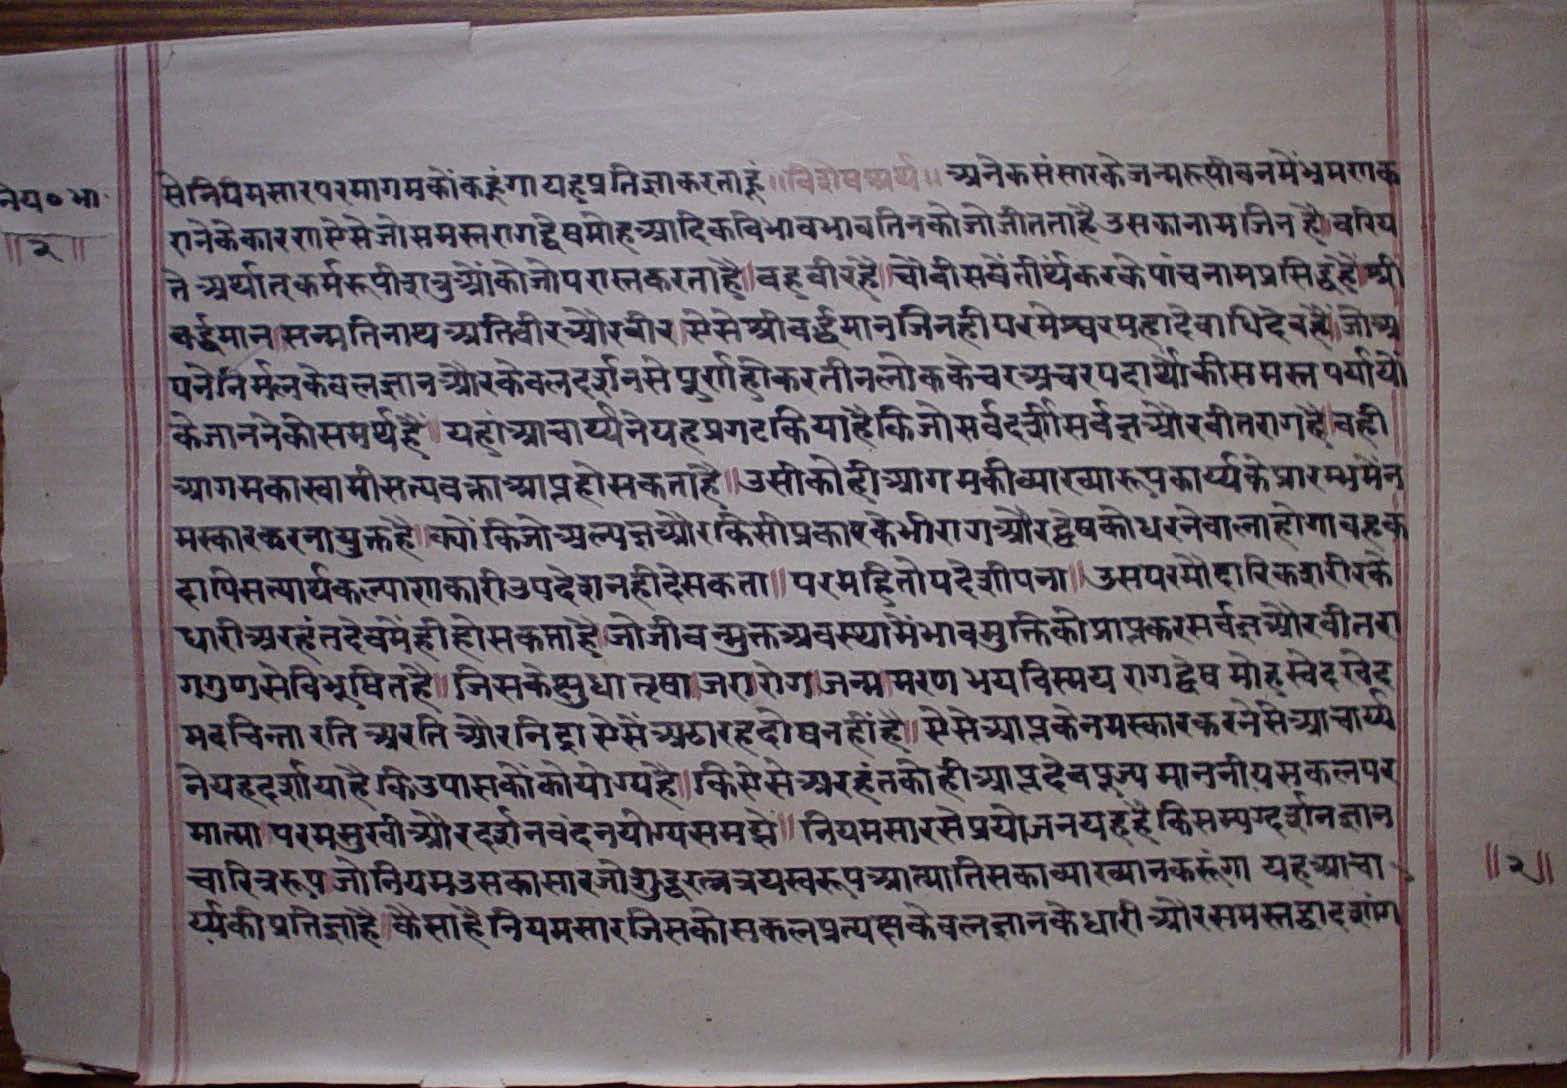 नेय॰भा॰
॥२॥
सेनियमसारपरमागमकोंकहूंगा यहप्रतिज्ञाकरताहूं ॥विशेषअर्थ॥ अनेकसंसारकेजन्मरूपीवनमेंभ्रमणक
रानेकेकारणऐसेजोसमस्तरागद्वेषमोहआदिकविभावभावतिनकोजोजीतताहै उसकानामजिनहै॥वरिय
तेअर्थात्कर्मरूपीशत्रुओंकोजोपरास्तकरताहै॥वहवीरहै॥चौवीसवेंतीर्थंकरकेपांचनामप्रसिद्धहैं॥श्री
वर्द्धमान।सन्मतिनाथअतिवीरऔरवीर।ऐसेश्रीवर्द्धमानजिनहीपरमेश्वरमहादेवाधिदेवहैं॥जोअ
पनेनिर्मलकेवलज्ञानऔरकेवलदर्शनसेपूर्णहोकरतीनलोककेचरअचरपदार्थोंकीसमस्तपर्यायों
केजाननेकोसमर्थहैं॥ यहांआचार्य्यनेयहप्रगटकियाहैकिजोसर्वदर्शीसर्वज्ञऔरवीतरागहै॥वही
आगमकास्वामीसत्यवक्ताआप्तहोसकताहै॥उसीकोहीआगमकीव्याख्यारूपकार्य्यकेप्रारम्भमेंन
मस्कारकरनायुक्तहै॥क्योंकिजोअल्पज्ञऔरकिसीप्रकारकेभीरागऔरद्वेषकोधरनेवालाहोगावहक
दापिसत्यार्थकल्याणकारीउपदेशनहींदेसकता॥परमहितोपदेशीपना॥ उसपरमौदारिकशरीरके
धारीअरहंतदेवमेंहीहोसकताहै।जोजीवन्मुक्तअवस्थामेंभावमुक्तिकोप्राप्तकरसर्वज्ञऔरवीतरा
गगुणसेविभूषितहै॥ जिसकेक्षुधा तृषा।जरा।रोग।जन्म।मरण भयविस्मय रागद्वेष मोहस्वेदखेद
मदचिन्तारतिअरतिऔरनिद्रा ऐसेंअठारहदोषनहींहैं॥ ऐसेआप्तकेनमस्कारकरनेसेआचार्य्य
नेयहदर्शायाहैकिउपासकोंकोयोग्यहै॥किऐसेअरहंतकोहीआप्तदेवपूज्यमाननीयसकलपर
मात्मा।परमसुखीऔरदर्शनवंदनयोग्यसमझें॥ नियमसारसेप्रयोजनयहहैकिसम्यग्दर्शनज्ञान
चारित्ररूप।जोनियमउसकासारजोशुद्धरत्नत्रयस्वरूपआत्मातिसकाव्याख्यानकरूंगा यहआचा
र्य्यकीप्रतिज्ञाहै॥कैसाहैनियमसारजिसकोसकलप्रत्यक्षकेवलज्ञानकेधारीऔरसमस्तद्वादशांग
॥२॥